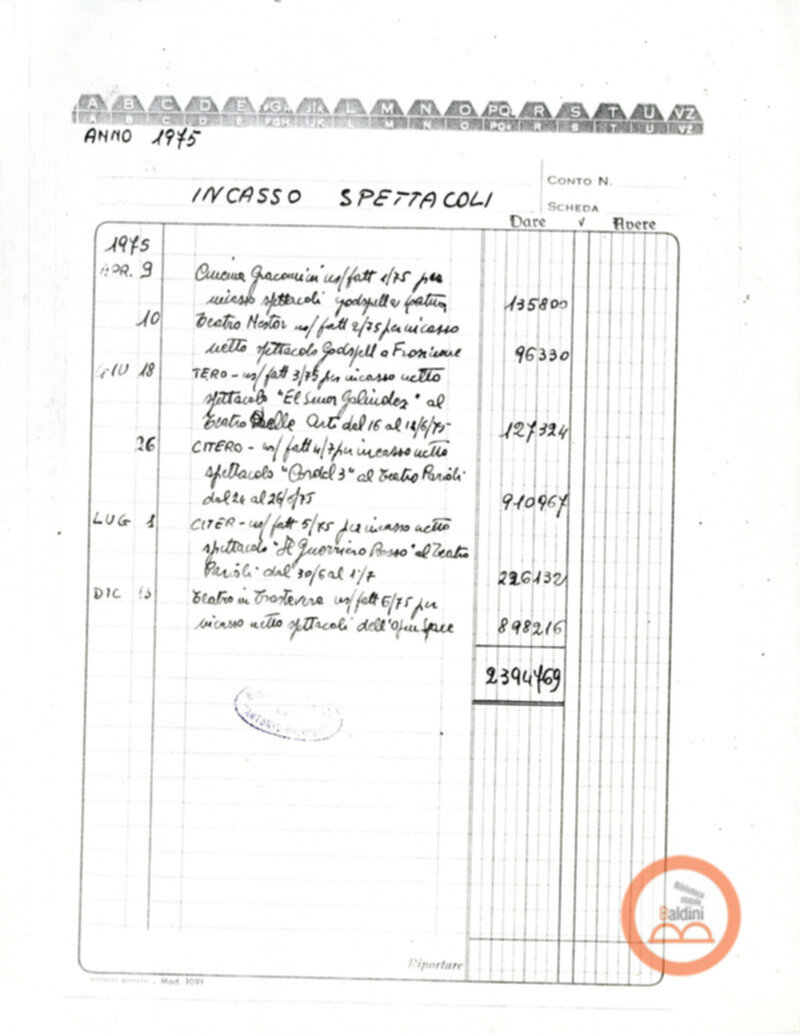 A B C D E FGH IJK L M N O PQ R S T U VZ
A B C D E FGH IJK L M N O PQ R S T U VZ
ANNO 1975
CONTO N.
INCASSO SPETTACOLI
SCHEDA
Dare V Avere
1975
APR. 9 Cinema Giacomini ns/fatt 1/75 per
incasso spettacoli godspell a
135800
10 Teatro Nestor ns/fatt 2/75 per incasso
netto spettacolo Godspell a Frosinone 96330
GIU 18 TERO - ns/fatt 3/75 per incasso netto
spettacolo "El Senor Galindez" al
Teatro Delle Arti dal 16 al 18/6/75 127324
26 CITERO - ns/fatt 4/7 per incasso netto
spettacolo "Cordel 3" al Teatro Parioli
dal 24 al 26/6/75 910967
LUG 1 CITER - ns/fatt 5/75 per incasso netto
spettacolo "Il Guerriero Rosso" al Teatro
Parioli dal 30/6 al 1/7 226132
DIC 13 Teatro in Trastevere ns/fatt 6/75 per
incasso netto spettacoli dell'Open Space 898216
2394769
Biblioteca
statale
Baldini
Riportare
Mod. 1091